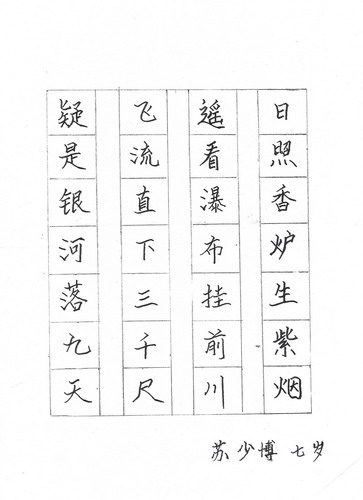 日照香炉生紫烟
遥看瀑布挂前川
飞流直下三千尺
疑是银河落九天
苏少博 七岁